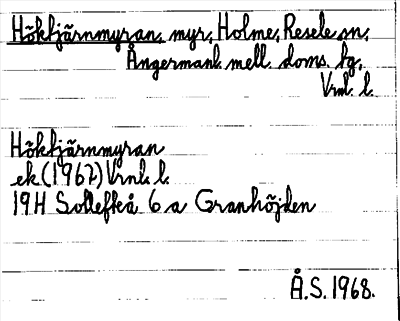 Hökfjärnmyran, myr, Holme, Resele sn,
Ångermanl. mell. doms. bg,
Vrnl. l.
Hökfjärnmyran
ek (1967) Vrnl. l.
19H Sollefteå 6 a Granhöjden
Å.S. 1968.